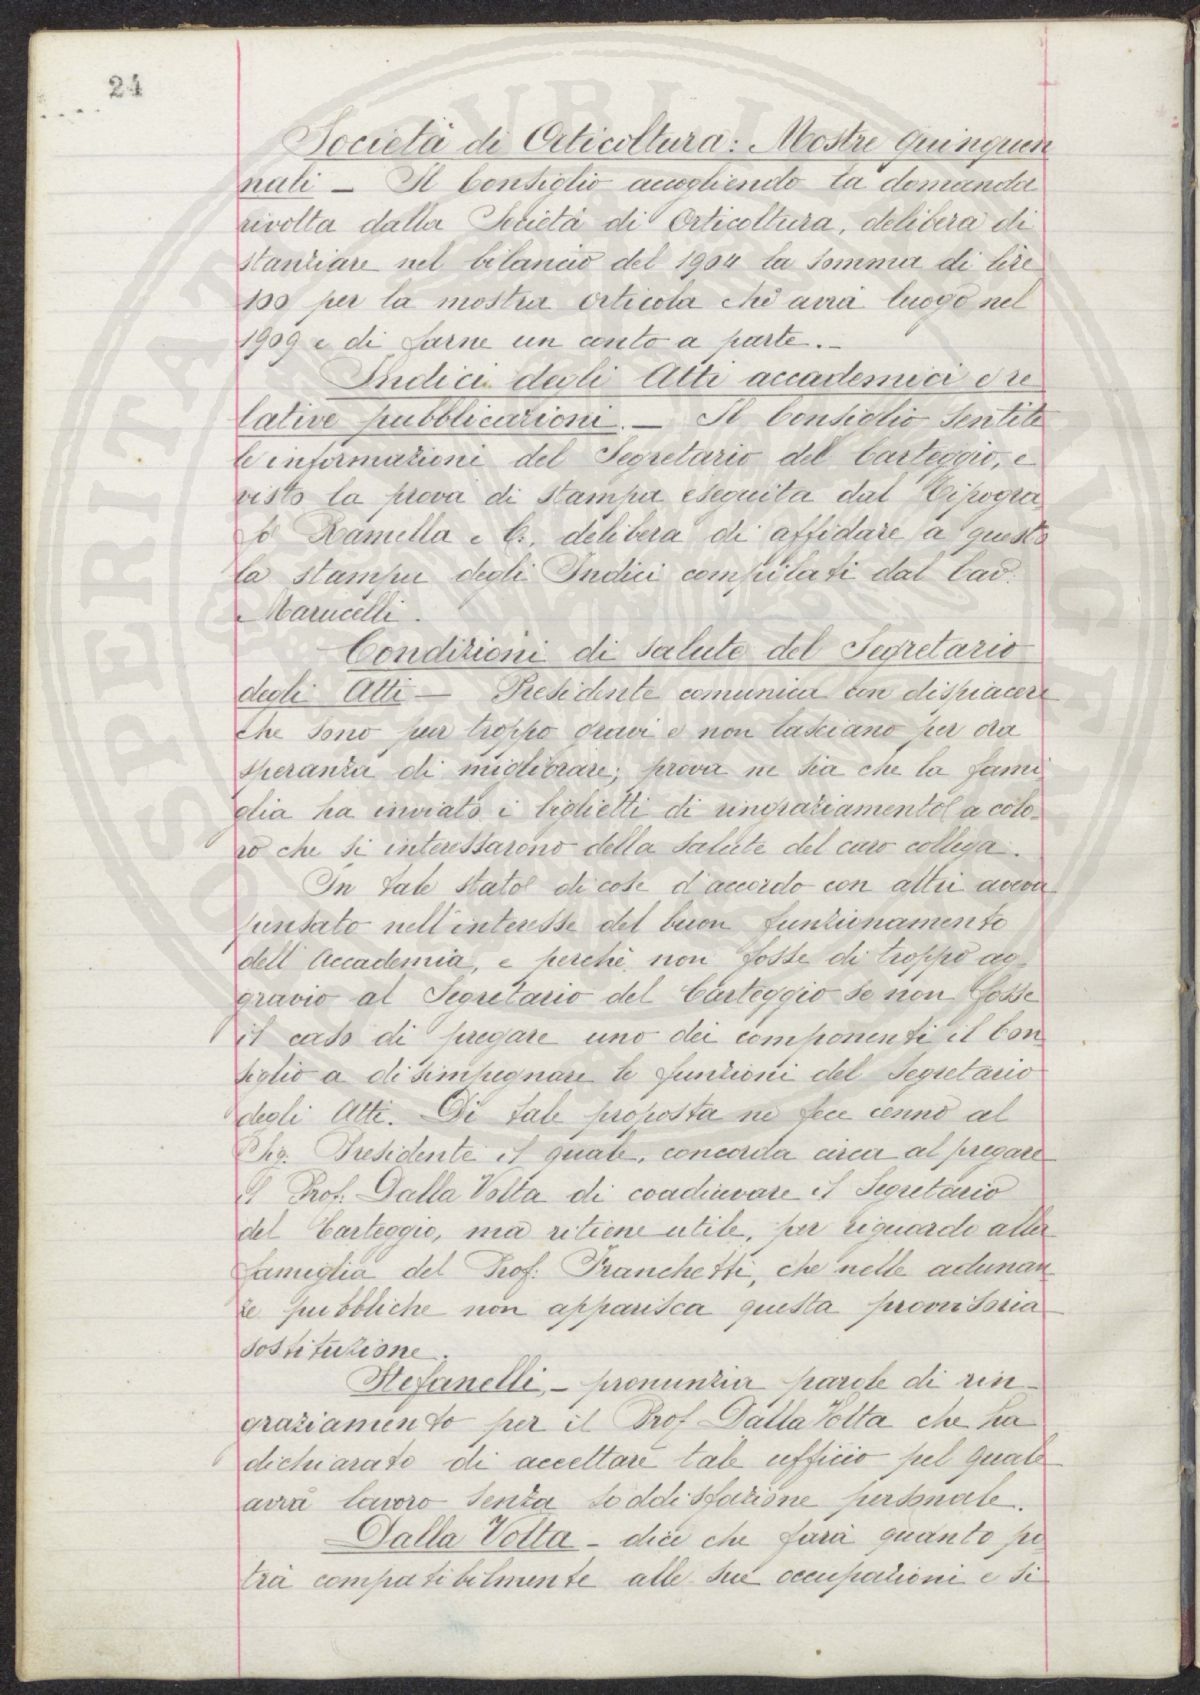 24
Società di Orticoltura: Mostre quinquen
nali — Il Consiglio accogliendo la domanda
rivolta dalla Società di Orticoltura, delibera di
stanziare nel bilancio del 1904 la somma di lire
100 per la mostra orticola che avrà luogo nel
1909 e di farne un conto a parte.—
Indici degli Atti accademici e re
lative pubblicazioni. — Il Consiglio sentite
le informazioni del Segretario del Carteggio, e
visto la prova di stampa eseguita dal Tipogra
fo Ramella e C., delibera di affidare a questo
la stampa degli Indici compilati dal Cav.
Marucelli.
Condizioni di salute del Segretario
degli Atti — Presidente comunica con dispiacere
che sono pur troppo gravi e non lasciano per ora
speranza di migliorare; prova ne sia che la fami
glia ha inviato i biglietti di ringraziamento a colo-
ro che si interessarono della salute del caro collega.
In tale stato di cose d'accordo con altri aveva
pensato nell'interesse del buon funzionamento
dell'Accademia, e perchè non fosse di troppo ag-
gravio al Segretario del Carteggio se non fosse
il caso di pregare uno dei componenti il Con
siglio a disimpegnare le funzioni del Segretario
degli Atti. Di tale proposta ne fece cenno al
Presidente il quale, concorda circa al pregare
il Prof. Dalla Volta di coadiuvare il Segretario
del Carteggio, ma ritiene utile, per riguardo alla
famiglia del Prof. Franchetti, che nelle adunan
ze pubbliche non apparisca questa provvisoria
sostituzione.
Stefanelli, — pronunzia parole di rin-
graziamento per il Prof. Dalla Volta che ha
dichiarato di accettare tale ufficio pel quale
avrà lavoro senza soddisfazione personale.
Dalla Volta — dice che farà quanto po
trà compatibilmente alle sue occupazioni e si